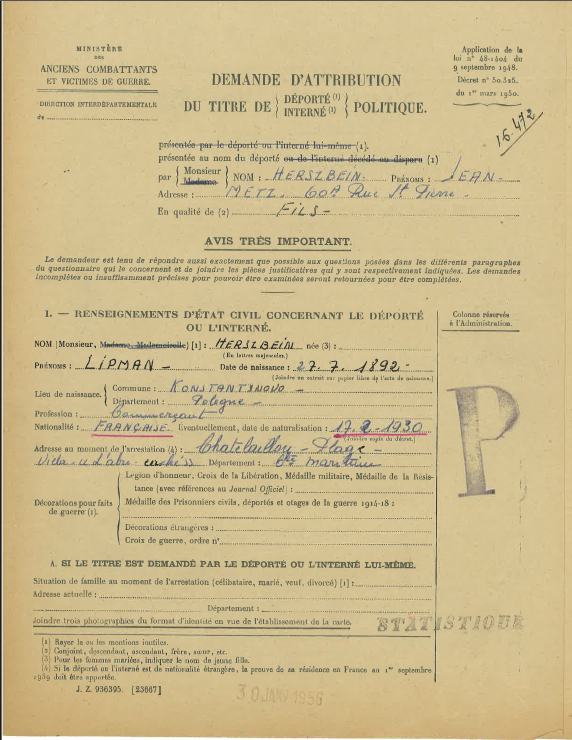 MINISTÈRE
DES
ANCIENS COMBATTANTS
ET VICTIMES DE GUERRE.
DIRECTION INTERDÉPARTEMENTALE
de
Application de la
loi n° 48-1404 du
9 septembre 1948.
Décret n° 50.325.
du 1er mars 1950.
DEMANDE D'ATTRIBUTION
DU TITRE DE { DÉPORTÉ (1) INTERNÉ (1) } POLITIQUE.
16.472
présentée par le déporté ou l'interné lui-même (1).
présentée au nom du déporté ou de l'interné décédé ou disparu (1)
par { Monsieur Madame } NOM : HERSZBEIN. PRÉNOMS : JEAN-
Adresse : METZ. 60A Rue St Pierre -
En qualité de (2) FILS -
AVIS TRÈS IMPORTANT.
Le demandeur est tenu de répondre aussi exactement que possible aux questions posées dans les différents paragraphes
du questionnaire qui le concernent et de joindre les pièces justificatives qui y sont respectivement indiquées. Les demandes
incomplètes ou insuffisamment précises pour pouvoir être examinées seront retournées pour être complétées.
I. — RENSEIGNEMENTS D'ÉTAT CIVIL CONCERNANT LE DÉPORTÉ
OU L'INTERNÉ.
Colonne réservée
à l'Administration.
NOM (Monsieur, Madame, Mademoiselle) [1] : HERSZBEIN née (3) :
(En lettres majuscules.)
PRÉNOMS : LIPMAN - Date de naissance : 27.7.1892 -
(Joindre un extrait sur papier libre de l'acte de naissance.)
Lieu de naissance. { Commune : KONSTANTINOVO -
Département : Pologne -
Profession : Commerçant
Nationalité : FRANÇAISE. Éventuellement, date de naturalisation : 17.2.1930
(Joindre copie du décret.)
Adresse au moment de l'arrestation (4) : Chatelaillon - Plage -
Département : Cte maritime
Décorations pour faits
de guerre (1). { Légion d'honneur, Croix de la Libération, Médaille militaire, Médaille de la Résis-
tance (avec références au Journal Officiel) :
Médaille des Prisonniers civils, déportés et otages de la guerre 1914-18 :
Décorations étrangères :
Croix de guerre, ordre n°
P
A. SI LE TITRE EST DEMANDÉ PAR LE DÉPORTÉ OU L'INTERNÉ LUI-MÊME.
Situation de famille au moment de l'arrestation (célibataire, marié, veuf, divorcé) [1] :
Adresse actuelle :
Département :
Joindre trois photographies du format d'identité en vue de l'établissement de la carte.
STATISTIQUE
(1) Rayer le ou les mentions inutiles.
(2) Conjoint, descendant, ascendant, frère, sœur, etc.
(3) Pour les femmes mariées, indiquer le nom de jeune fille.
(4) Si le déporté ou l'interné est de nationalité étrangère, la preuve de sa résidence en France au 1er septembre
1939 doit être apportée.
J. Z. 936395. [23667]
30 JANV 1956